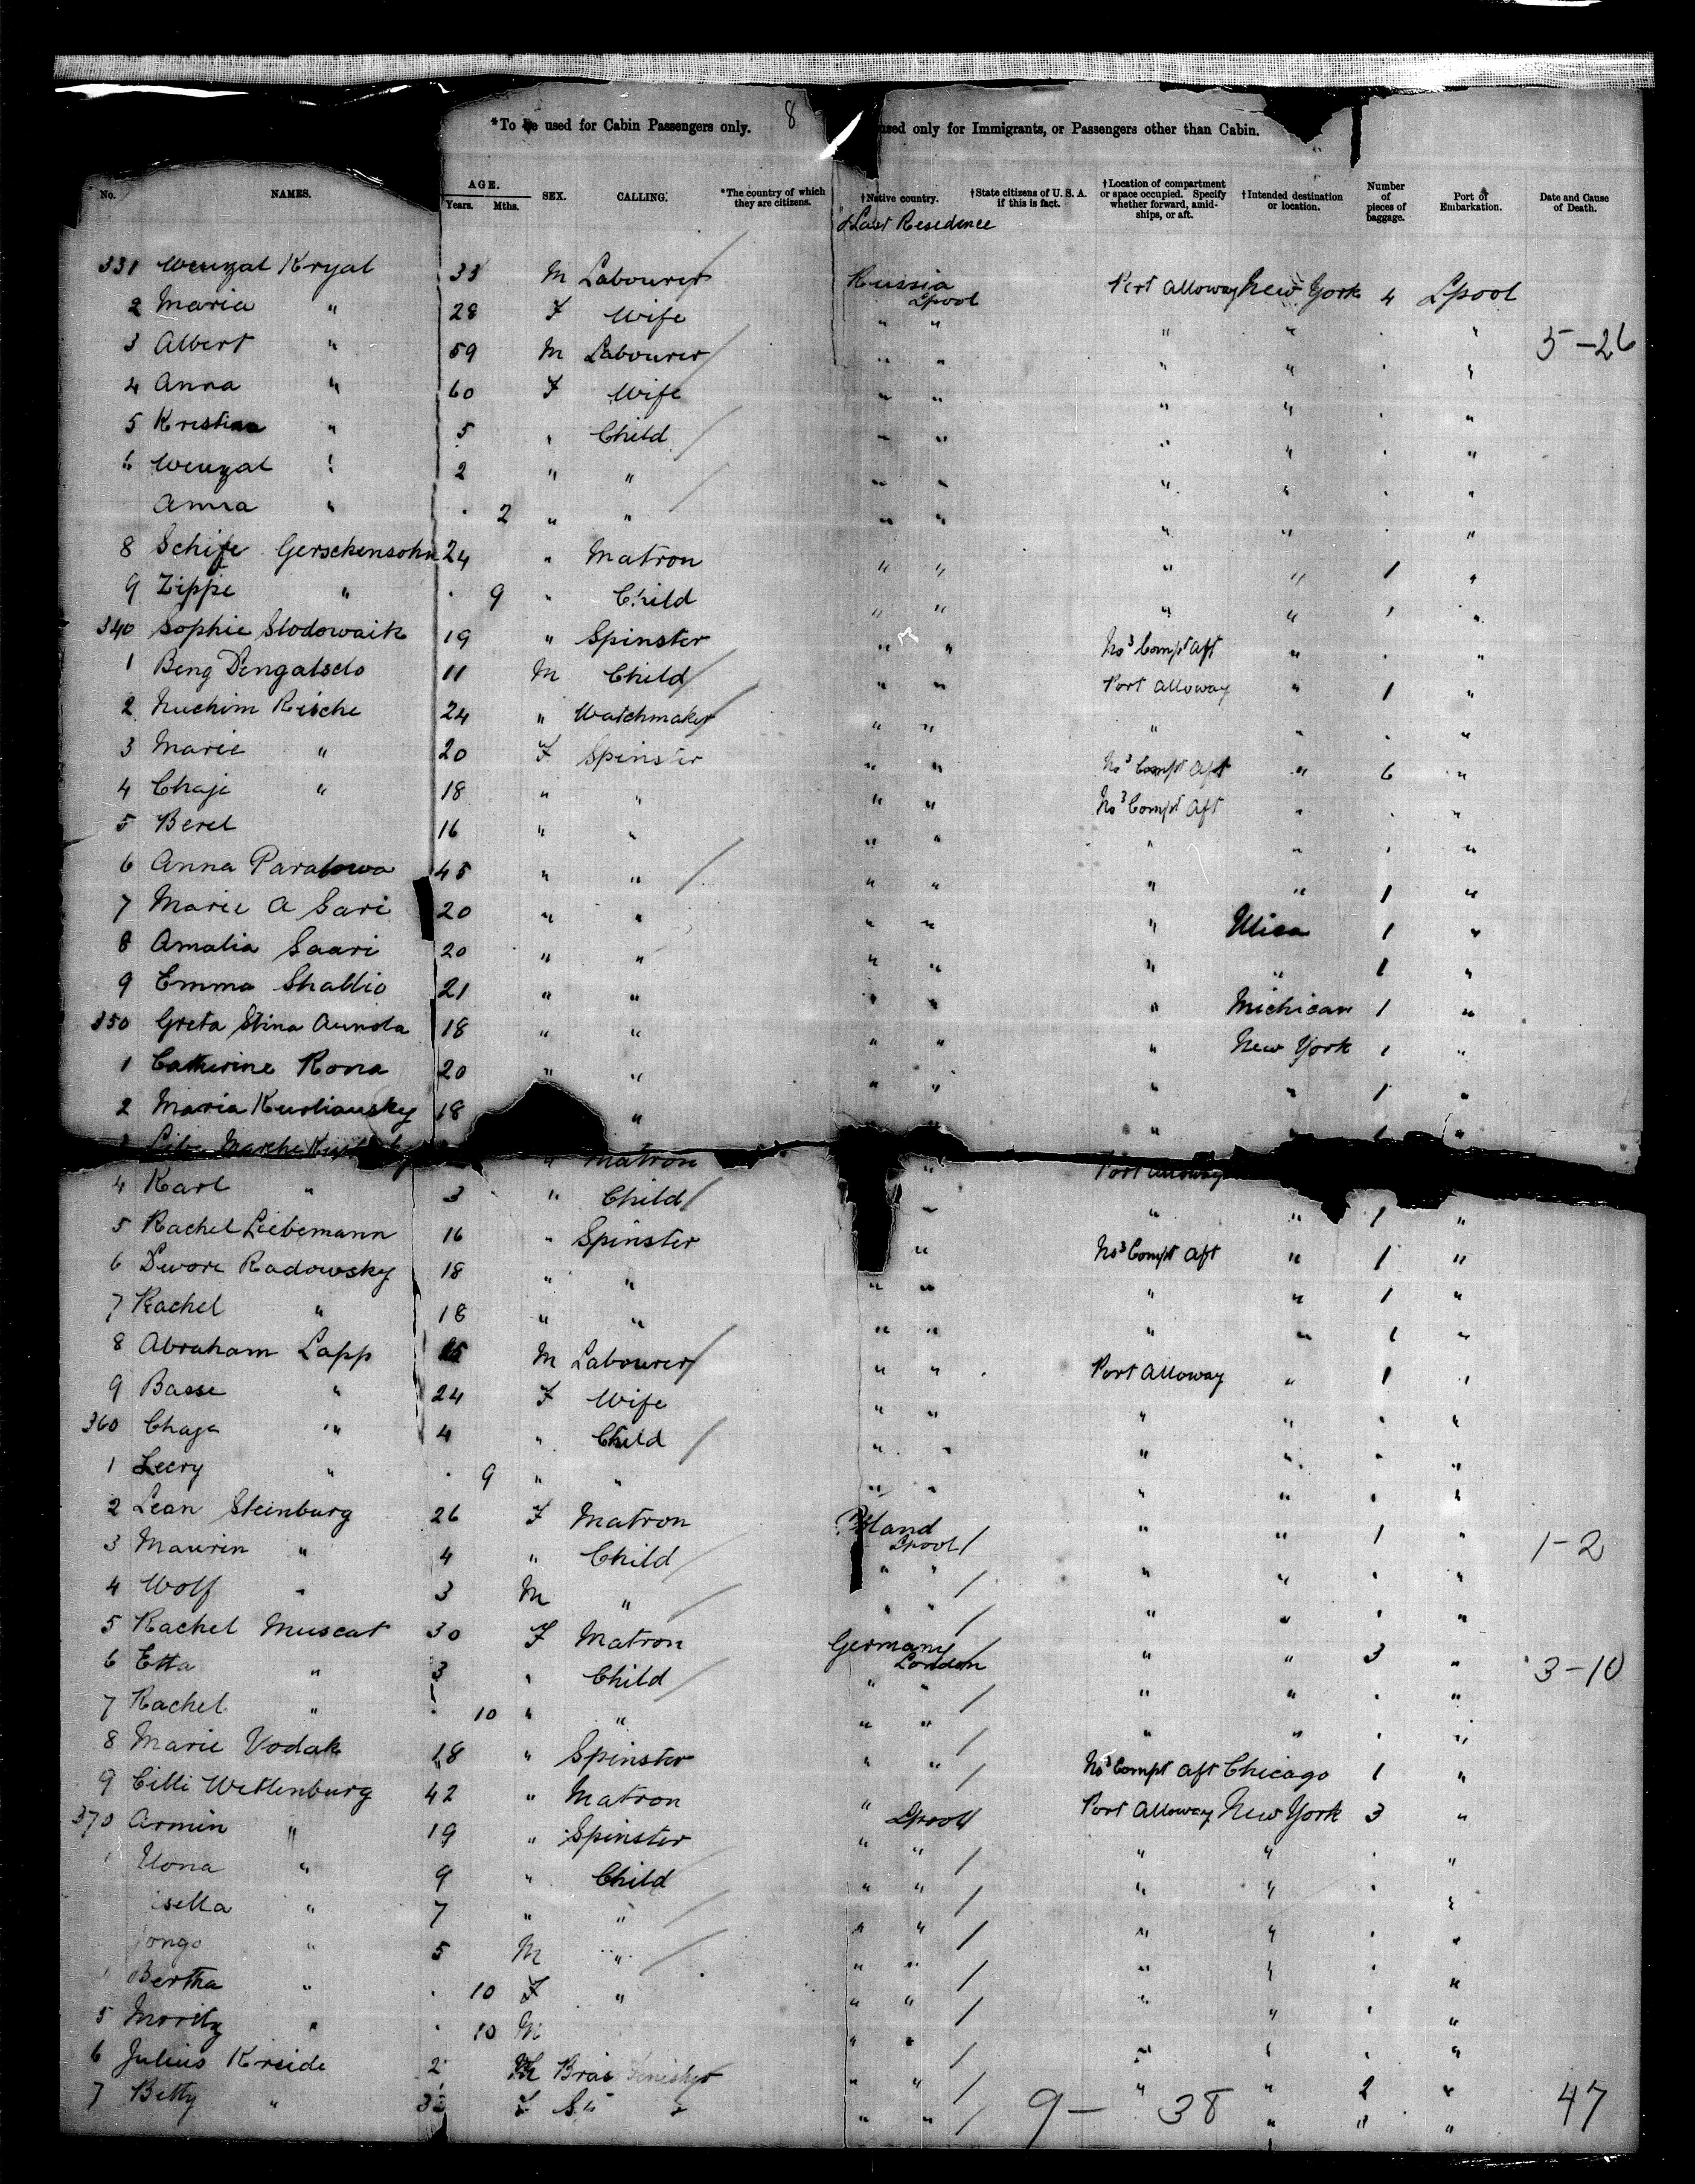 *To be used for Cabin Passengers only. 8 used only for Immigrants, or Passengers other than Cabin.
No. NAMES. AGE. Years. Mths. SEX. CALLING. *The country of which they are citizens. †Native country. †State citizens of U. S. A. if this is fact. †Location of compartment or space occupied. Specify whether forward, amidships, or aft. †Intended destination or location. Number of pieces of baggage. Port of Embarkation. Date and Cause of Death.
& Last Residence
331 Wenzal Kryal 33 M Labourer Russia Lpool Port Alloway New York 4 Lpool
2 Maria " 28 F Wife " " " " "
3 Albert " 59 M Labourer " " " " " 5-26
4 Anna " 60 F Wife " " " " "
5 Kristina " 5 " Child " " " " "
6 Wenzal " 2 " " " " " " "
Anna " 2 " " " " " " "
8 Schife Gerschensohn 24 " Matron " " " " 1 "
9 Zippe " 9 " Child " " " " "
340 Sophie Slodowaik 19 " Spinster " " No 3 Compt Aft " "
1 Beng Dengalsclo 11 M Child " " Port Alloway " 1 "
2 Nuchim Rische 24 " Watchmaker " " " " "
3 Marie " 20 F Spinster " " No 3 Compt Aft " 6 "
4 Chaje " 18 " " " " No 3 Compt Aft " "
5 Berel 16 " " " " " " "
6 Anna Paralowa 45 " " " " " " 1 "
7 Marie A Sari 20 " " " " " Utica 1 "
8 Amalia Saari 20 " " " " " " 1 "
9 Emma Shallio 21 " " " " " Michican 1 "
350 Greta Stina Aunola 18 " " " " " New York 1 "
1 Catherine Rona 20 " " " " " " 1 "
2 Maria Kurliansky 18 " " " " 1 "
Libe Marche " Matron " Port Alloway
4 Karl " 3 " Child " " " 1 "
5 Rachel Liebemann 16 " Spinster " No 3 Compt Aft " 1 "
6 Dwore Radowsky 18 " " " " " " 1 "
7 Rachel " 18 " " " " " " 1 "
8 Abraham Lapp M Labourer " " Port Alloway " 1 "
9 Basse " 24 F Wife " " " " "
360 Chaje " 4 " Child " " " " "
1 Leery " 9 " " " " " " "
2 Lean Steinburg 26 F Matron Poland Lpool " " 1 "
3 Maurin " 4 " Child " " " " " 1-2
4 Wolf " 3 M " " " " " "
5 Rachel Muscat 30 F Matron Germany London " " 3 "
6 Etta " 3 " Child " " " " " 3-10
7 Rachel " 10 " " " " " " "
8 Marie Vodak 18 " Spinster " " No 3 Compt Aft Chicago 1 "
9 Cilli Wittenburg 42 " Matron " Lpool Port Alloway New York 3 "
370 Armin " 19 " Spinster " " " " "
Ilona " 9 " Child " " " " "
isella " 7 " " " " " " "
" 5 M " " " " " "
Bertha " 10 F " " " " " "
5 Moritz " 10 M " " " " "
6 Julius Krside 2 M " " " " 2 "
7 Betty " 3 F " " " " " "
9- 38 47